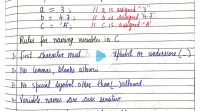 a = 3; // a is assigned "3"
b = 4.7; // b is assigned "4.7"
c = 'A'; // c is assigned 'A'
Rules for naming variables in C
1) First character must alphabet or underscore (_)
2) No commas, blanks allowed.
3) No special symbol other than _ allowed
4) Variable names are case sensitive